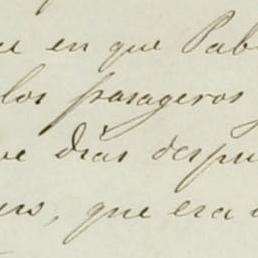 en que Pab
los pasageros
dias despu
que era